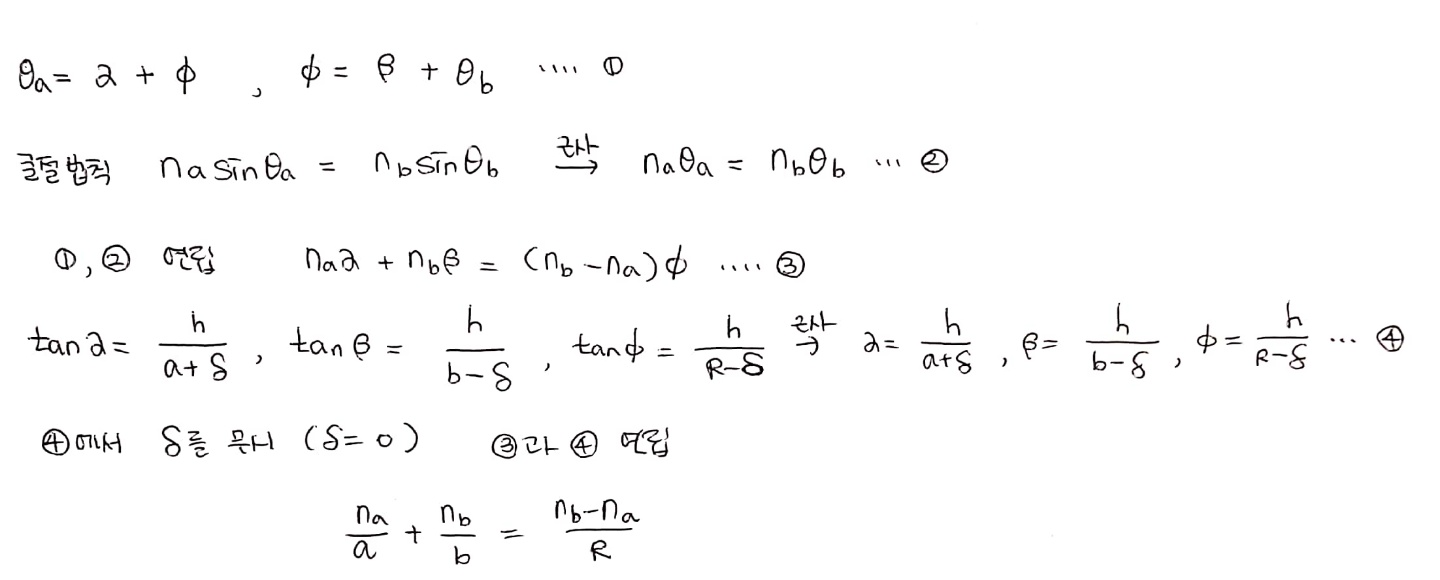 θa = α + ϕ , ϕ = β + θb ···· ①
굴절법칙 na sinθa = nb sinθb 근사→ naθa = nbθb ··· ②
①, ② 연립 naα + nbβ = (nb - na)ϕ ···· ③
tanα = h/(a+δ) , tanβ = h/(b-δ) , tanϕ = h/(R-δ) 근사→ α = h/(a+δ) , β = h/(b-δ) , ϕ = h/(R-δ) ··· ④
④에서 δ를 무시 (δ=0) ③과 ④ 연립
na/a + nb/b = (nb-na)/R